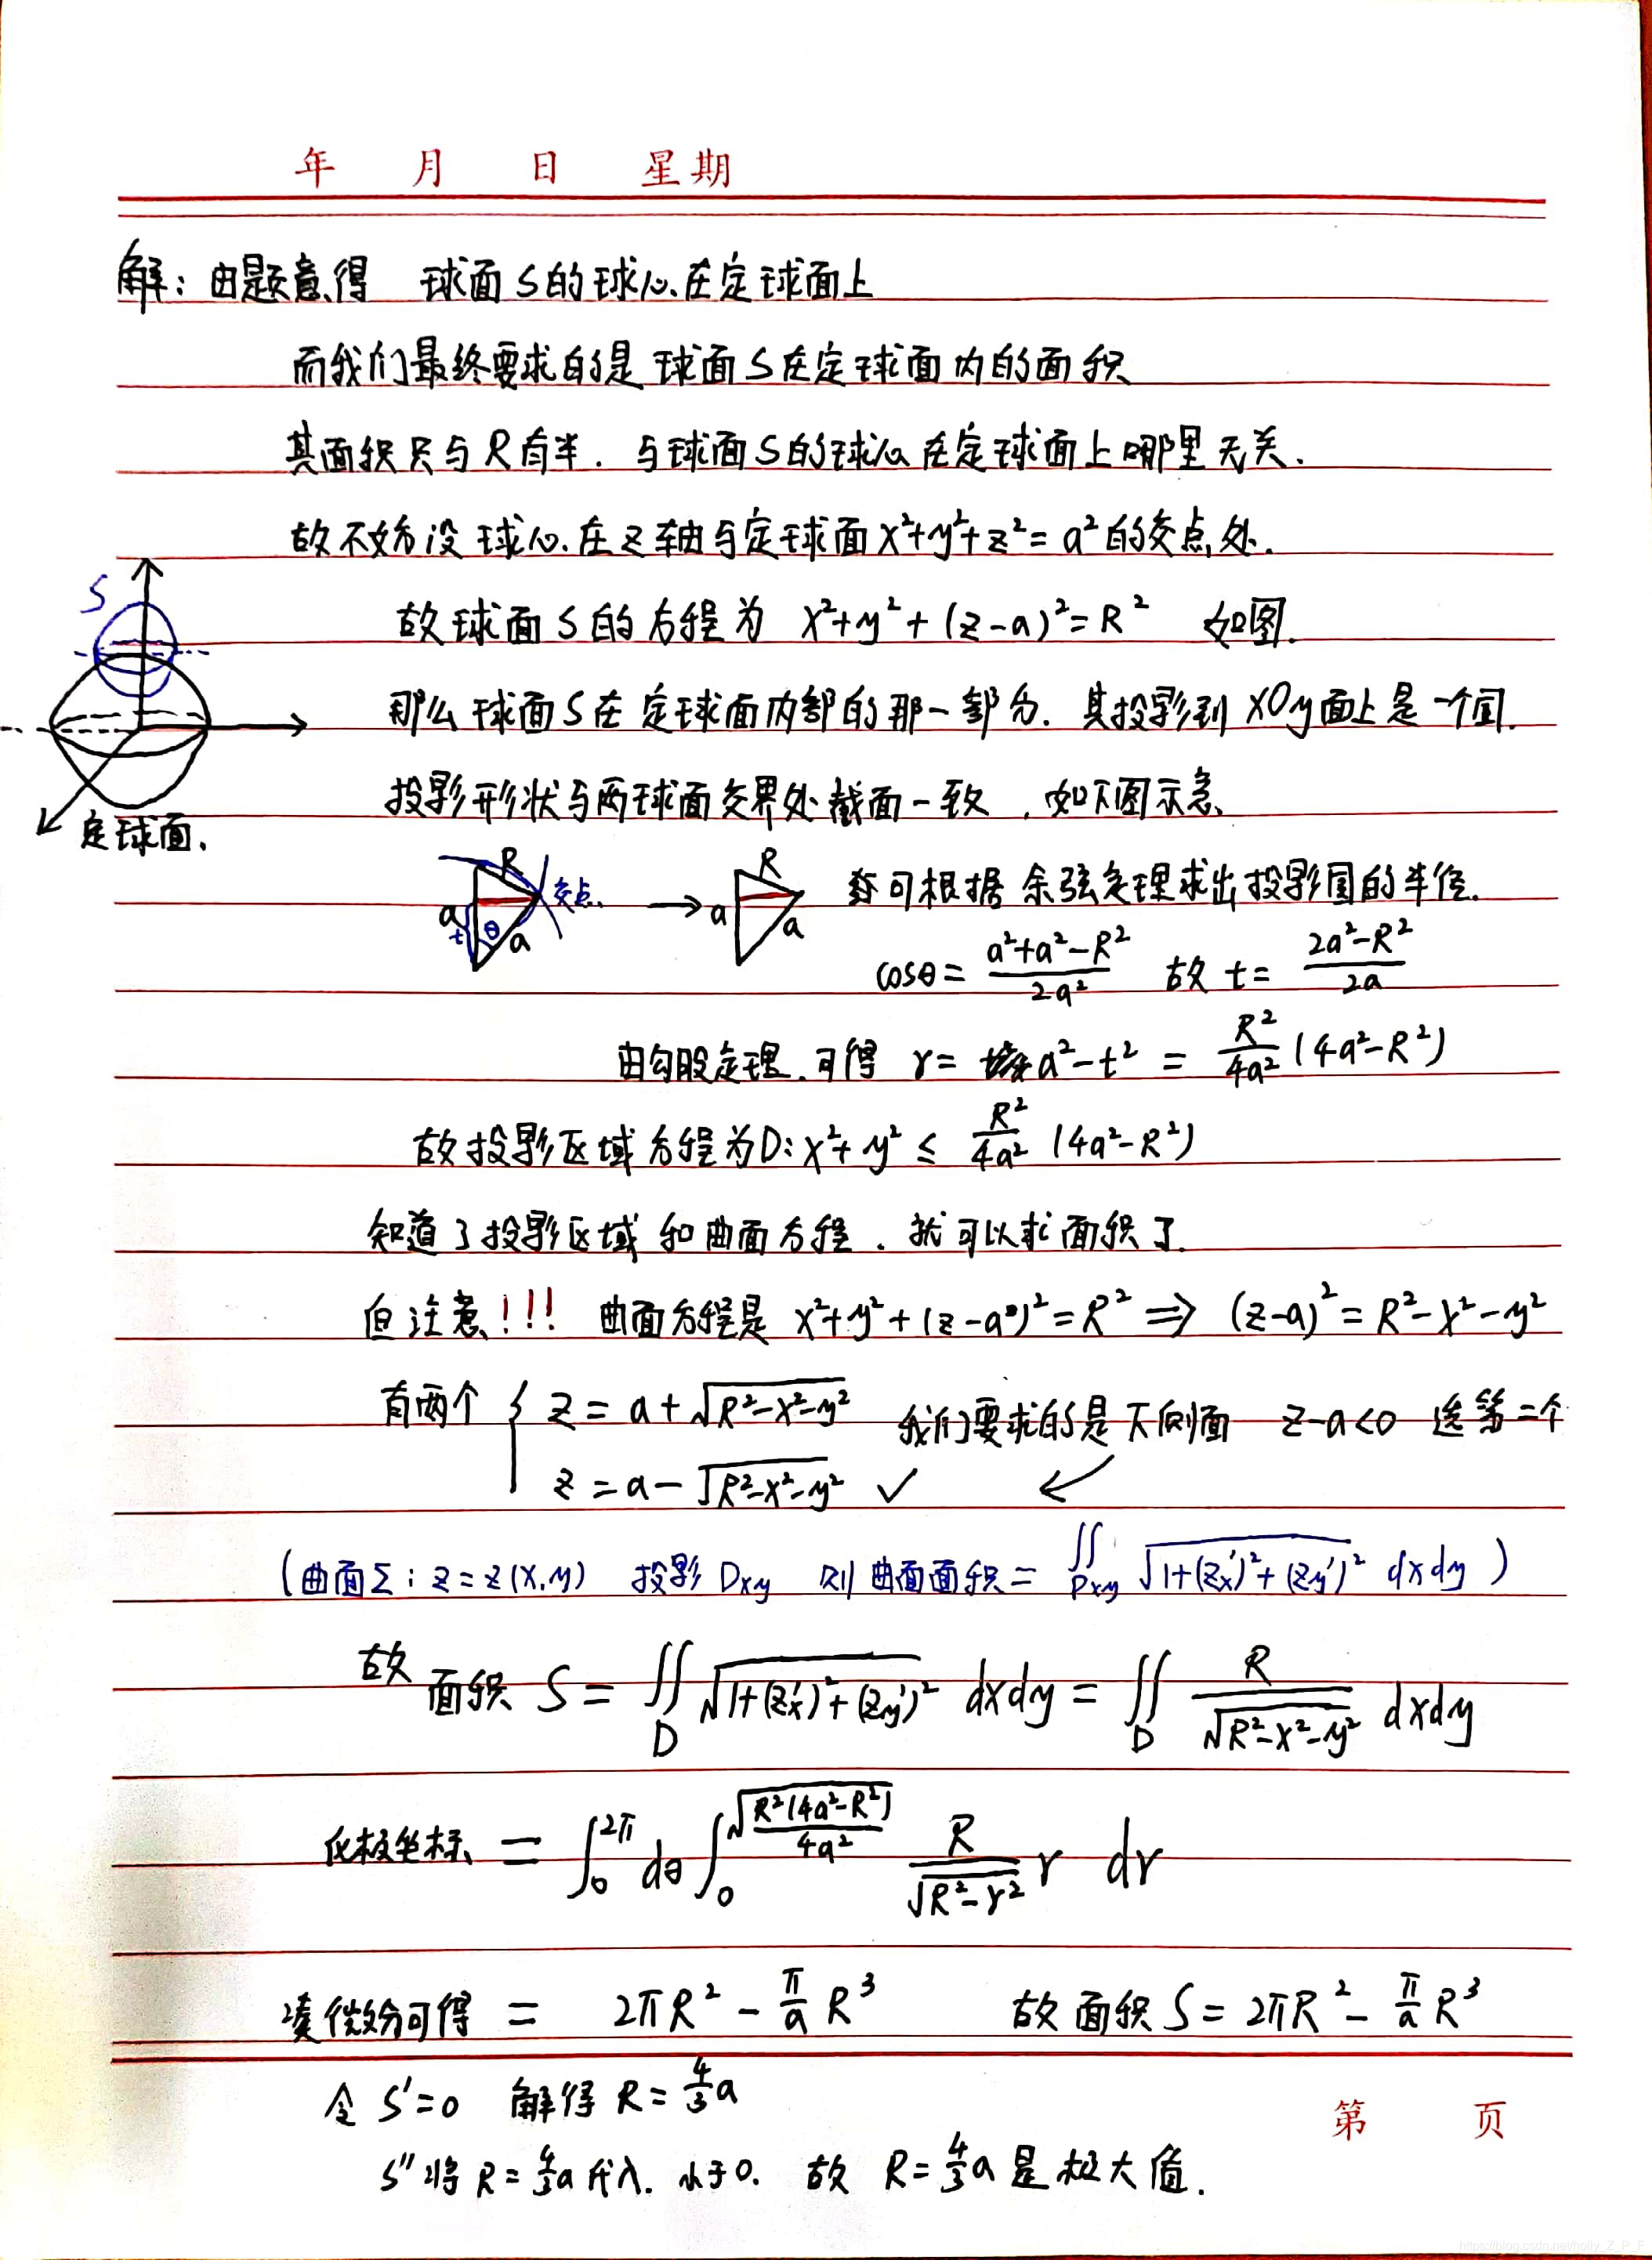 年 月 日 星期
解：由题意得 球面S的球心在定球面上
而我们最终要求的是球面S在定球面内的面积
其面积只与R有半．与球面S的球心在定球面上哪里无关．
故不妨设球心在z轴与定球面x²+y²+z²=a²的交点处．
S
故球面S的方程为 x²+y²+(z-a)²=R² 如图．
那么球面S在定球面内部的那一部分．其投影到xOy面上是一个圆．
投影形状与两球面交界处截面一致，如下图示意
定球面．
R a t θ a 交点 → R a a 可根据余弦定理求出投影圆的半径．
cosθ= (a²+a²-R²)/(2a²) 故 t= (2a²-R²)/(2a)
由勾股定理．可得 r= a²-t² = R²/(4a²) (4a²-R²)
故投影区域方程为D: x²+y² ≤ R²/(4a²) (4a²-R²)
知道了投影区域和曲面方程．就可以求面积了．
但注意!!! 曲面方程是 x²+y²+(z-a)²=R² ⇒ (z-a)²=R²-x²-y²
有两个 { z=a+√(R²-x²-y²) 我们要求的是下侧面 z-a<0 选第二个
z=a-√(R²-x²-y²) ✓ ↙
(曲面Σ: z=z(x,y) 投影Dxy 则曲面面积= ∬Dxy √(1+(z'x)²+(z'y)²) dxdy)
故面积 S= ∬D √(1+(z'x)²+(z'y)²) dxdy = ∬D R/√(R²-x²-y²) dxdy
化极坐标 = ∫₀^2π dθ ∫₀^√(R²(4a²-R²)/(4a²)) R/√(R²-r²) r dr
凑微分可得 = 2πR² - π/a R³ 故面积 S=2πR² - π/a R³
令 S'=0 解得 R=4/3 a
S''将R=4/3 a代入．小于0． 故 R=4/3 a 是极大值．
第 页